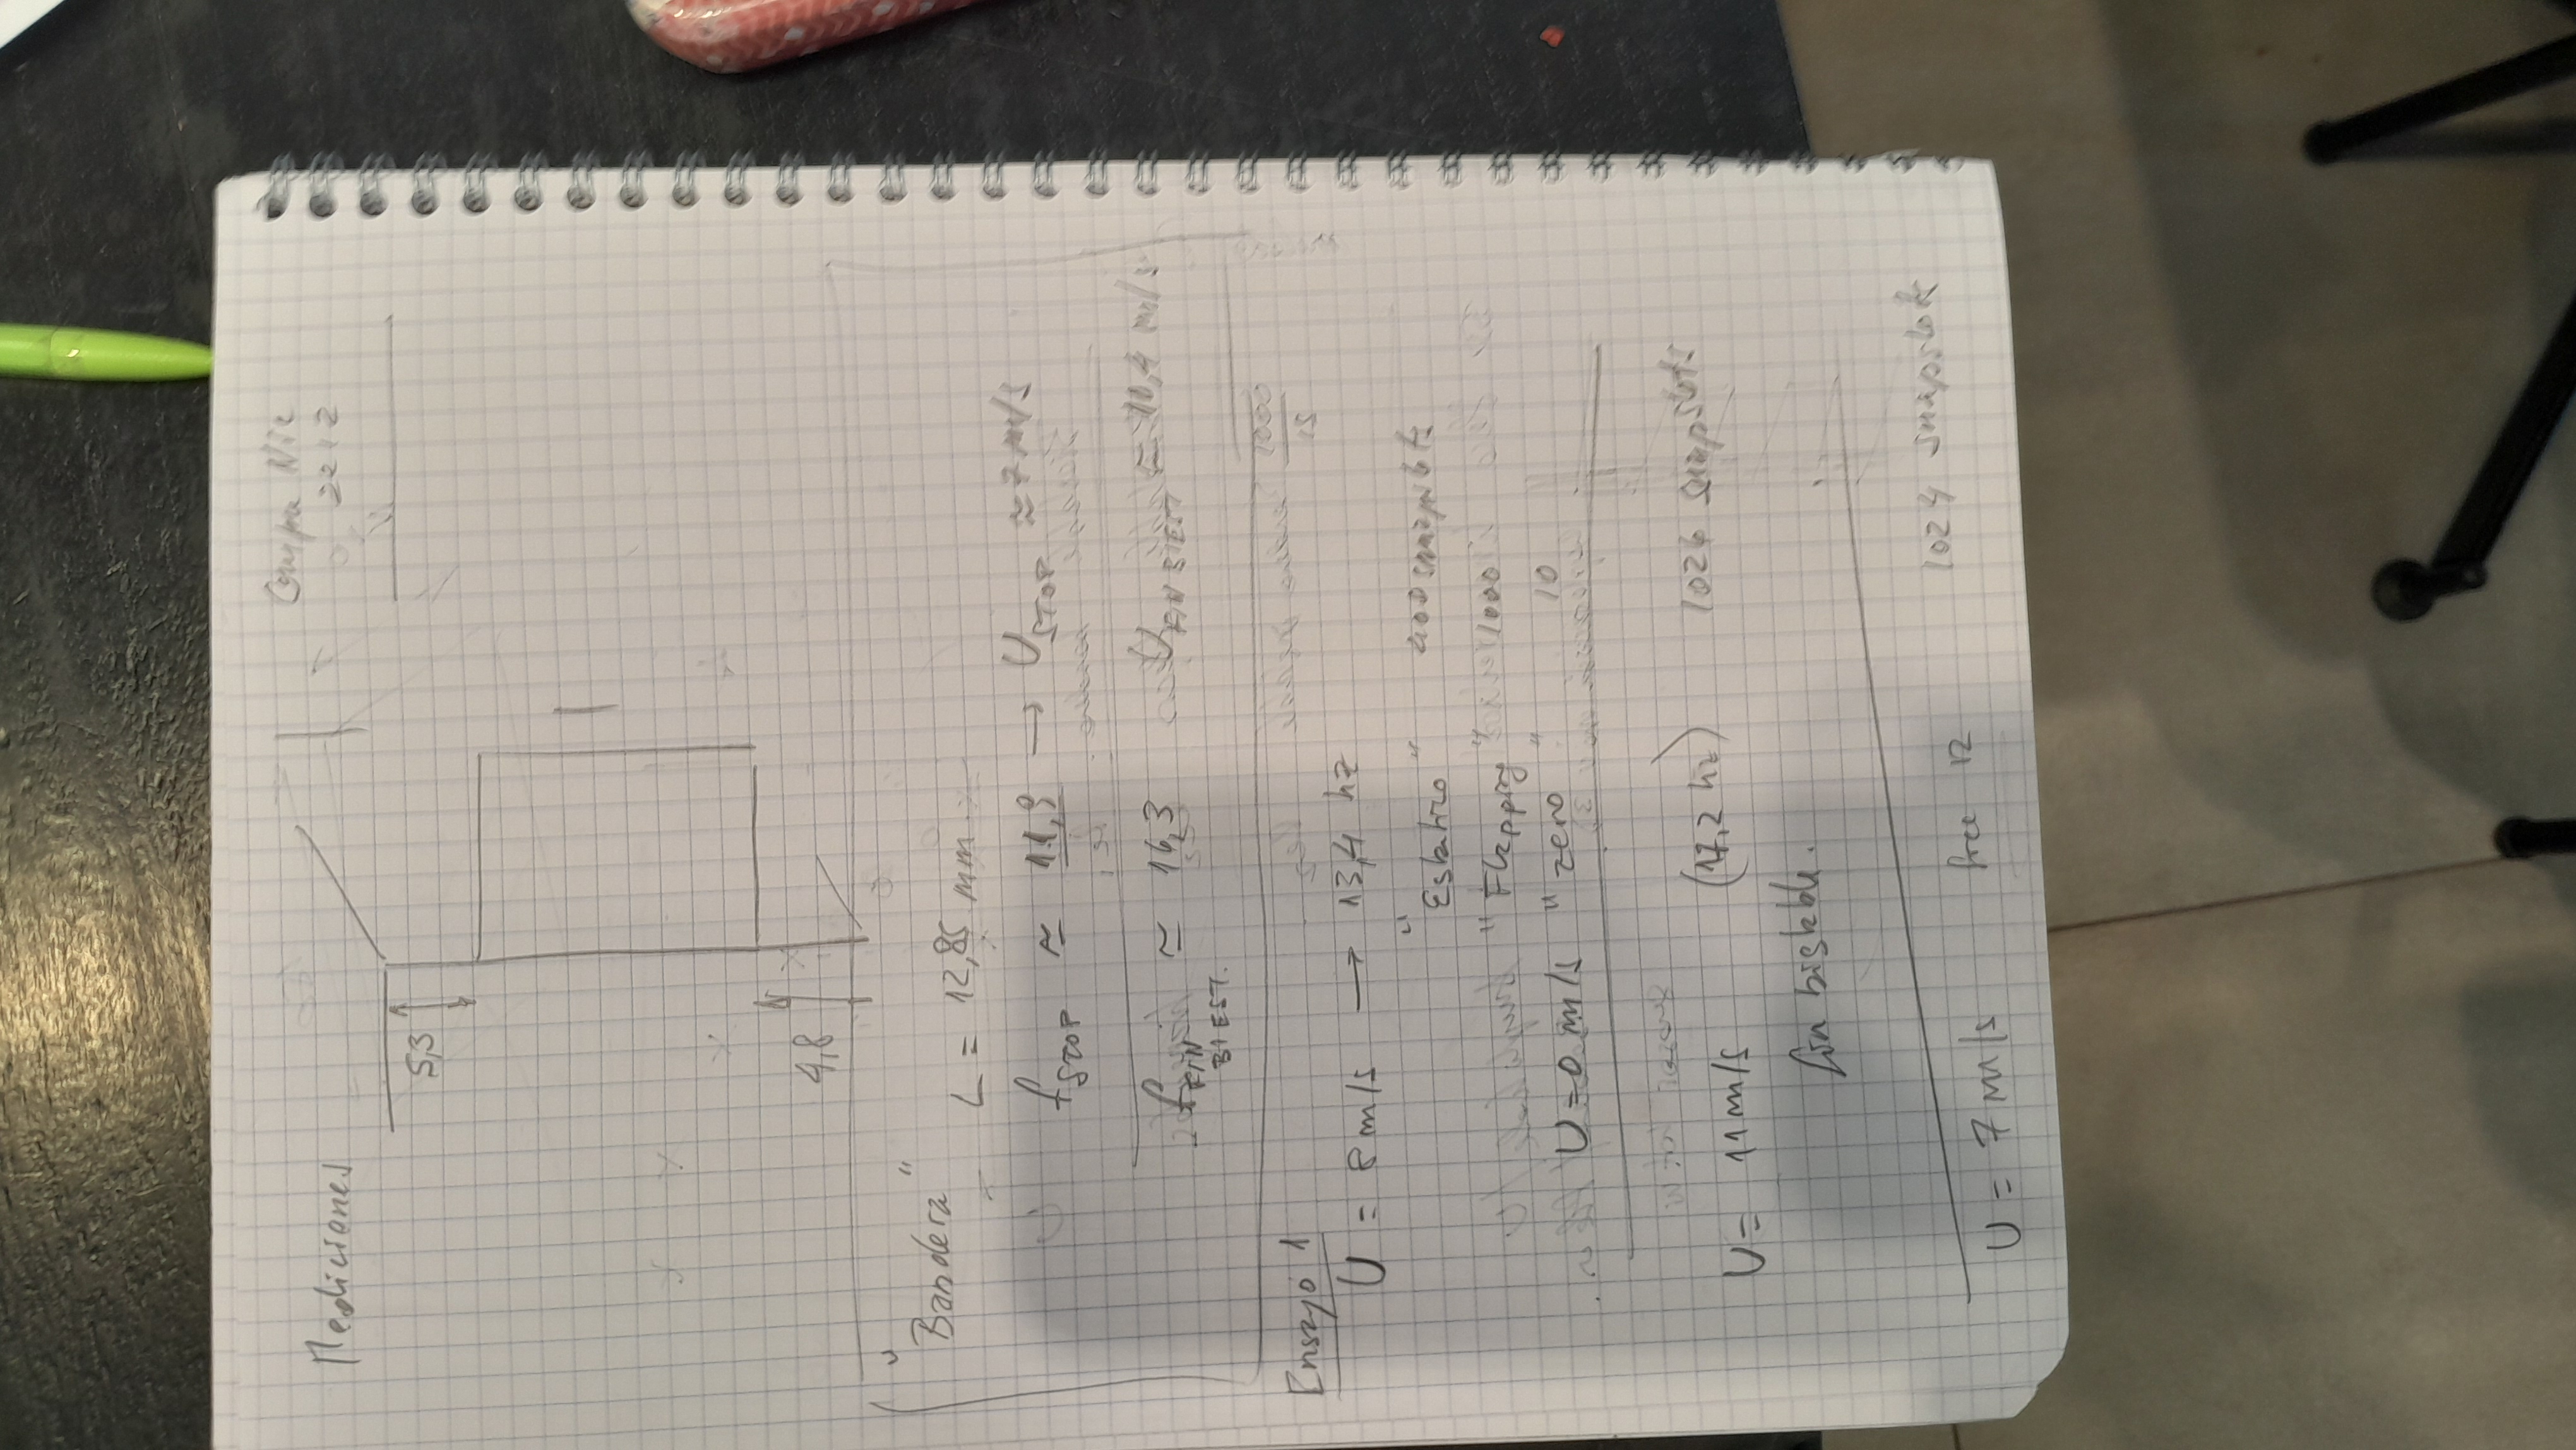 Mediciones
Compu Nic
2212
5,3
4,8
"Bandera"
L = 12,85 mm
fSTOP ≈ 11,9 → USTOP ≈ 7 m/s
fFIN BIEST. ≈ 16,3 UFIN BIEST ≈ 10,4 m/s
Ensayo 1
U = 8 m/s → 13,4 hz
"Estatico" 400 snapshots
"Flapping" 1000
U=0 m/s "zero" 10
U= 11 m/s (17,2 hz) 1024 snapshots
fin bistable.
U = 7 m/s frec 12 1024 snapshots